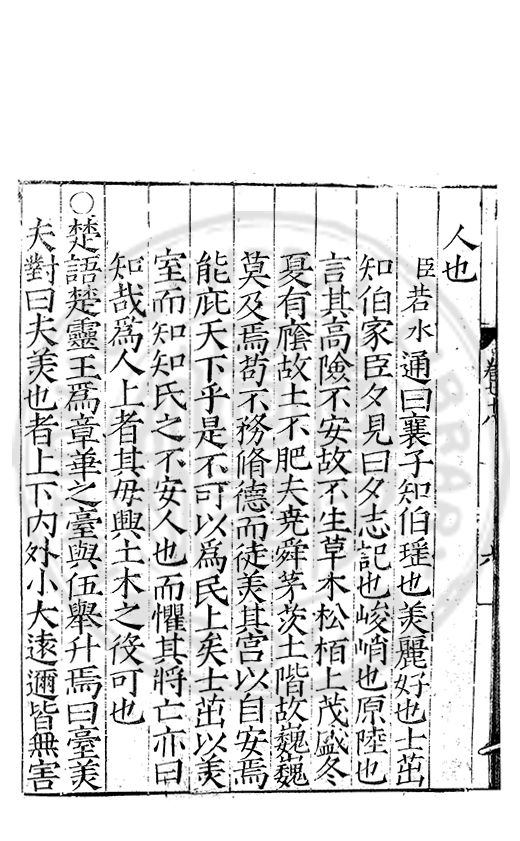 人也
臣若水通曰襄子知伯瑤也美麗好也士茁
知伯家臣夕見曰夕志記也峻峭也原陸也
言其高險不安故不生草木松栢上茂盛冬
夏有廕故土不肥夫堯舜茅茨土階故巍巍
莫及焉苟不務脩德而徒美其宮以自安焉
能庇天下乎是不可以爲民上矣士茁以美
室而知知氏之不安人也而懼其將亡亦曰
知哉爲人上者其毋興土木之役可也
○楚語楚靈王爲章華之臺與伍舉升焉曰臺美
夫對曰夫美也者上下內外小大遠邇皆無害